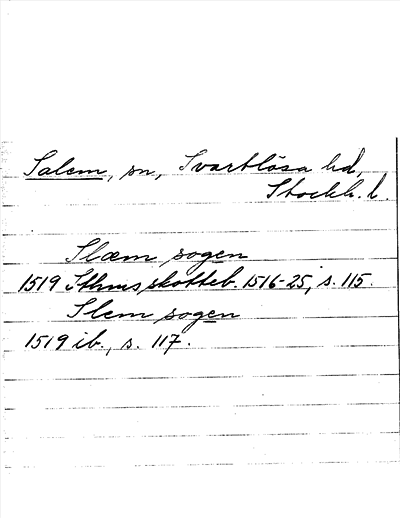 Salem, sn, Svartlösa hd,
Stockh. l.
Slæm sogen
1519 Sthms skotteb. 1516-25, s. 115.
Slem sogen
1519 ib., s. 117.